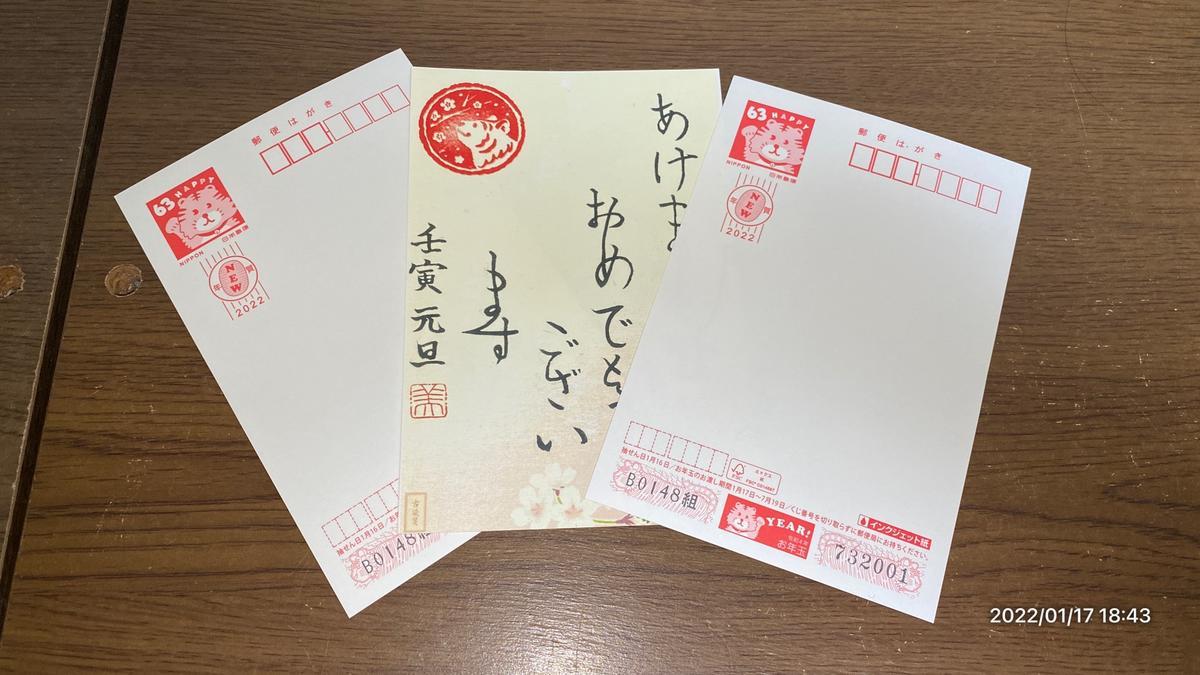 郵便はがき
63 HAPPY
NIPPON 日本郵便
年賀
NEW
2022
抽せん日1月16日/お
B0148組
あけま
おめでとう
ござい
ます
壬寅 元旦
郵便はがき
63 HAPPY
NIPPON 日本郵便
年賀
NEW
2022
抽せん日1月16日/お年玉のお渡し期間1月17日〜7月19日/くじ番号を切り取らずに郵便局にお持ちください。
FSC
ミックス
紙
B0148組
YEAR!
令和4年
お年玉
インクジェット紙
732001
2022/01/17 18:43